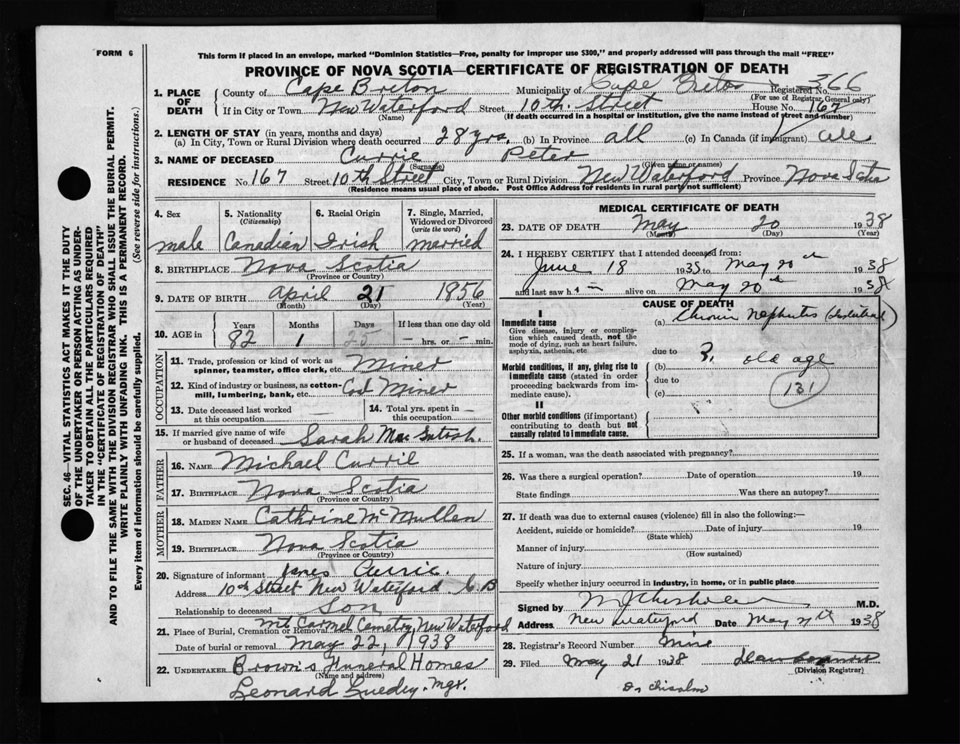 FORM 6
This form if placed in an envelope, marked "Dominion Statistics—Free, penalty for improper use $300," and properly addressed will pass through the mail "FREE"
PROVINCE OF NOVA SCOTIA—CERTIFICATE OF REGISTRATION OF DEATH
SEC. 46—VITAL STATISTICS ACT MAKES IT THE DUTY
OF THE UNDERTAKER OR PERSON ACTING AS UNDER-
TAKER TO OBTAIN ALL THE PARTICULARS REQUIRED
IN THE "CERTIFICATE OF REGISTRATION OF DEATH"
AND TO FILE THE SAME WITH THE DIVISION REGISTRAR WHO SHALL ISSUE THE BURIAL PERMIT.
WRITE PLAINLY WITH UNFADING INK. THIS IS A PERMANENT RECORD.
Every item of information should be carefully supplied. (See reverse side for instructions.)
1. PLACE OF DEATH County of Cape Breton Municipality of Cape Breton Registered No. 366
(For use of Registrar General only)
If in City or Town New Waterford Street 10th. Street House No. 167
(Name) (If death occurred in a hospital or institution, give the name instead of street and number)
2. LENGTH OF STAY (in years, months and days)
(a) In City, Town or Rural Division where death occurred 28 yrs. (b) In Province all (c) In Canada (if immigrant) all
3. NAME OF DECEASED Currie Peter
(Surname) (Given name or names)
RESIDENCE No. 167 Street 10th Street City, Town or Rural Division New Waterford Province Nova Scotia
(Residence means usual place of abode. Post Office Address for residents in rural parts not sufficient)
4. Sex 5. Nationality (Citizenship) 6. Racial Origin 7. Single, Married, Widowed or Divorced (write the word)
male Canadian Irish married
8. BIRTHPLACE Nova Scotia
(Province or Country)
9. DATE OF BIRTH April 21 1856
(Month) (Day) (Year)
10. AGE in Years Months Days If less than one day old
82 1 25 — hrs. or — min.
OCCUPATION
11. Trade, profession or kind of work as spinner, teamster, office clerk, etc. Miner
12. Kind of industry or business, as cotton-mill, lumbering, bank, etc. Coal Miner
13. Date deceased last worked at this occupation — 14. Total yrs. spent in this occupation —
15. If married give name of wife or husband of deceased Sarah MacIntosh.
FATHER
16. NAME Michael Currie
17. BIRTHPLACE Nova Scotia
(Province or Country)
MOTHER
18. MAIDEN NAME Cathrine McMullen
19. BIRTHPLACE Nova Scotia
(Province or Country)
20. Signature of informant James Currie.
Address 10th Street New Waterford. C.B
Relationship to deceased Son
21. Place of Burial, Cremation or Removal Mt. Carmel Cemetry New Waterford
Date of burial or removal May 22, 1938
22. UNDERTAKER Brown's Funeral Homes
(Name and address)
Leonard . Mgr.
MEDICAL CERTIFICATE OF DEATH
23. DATE OF DEATH May 20 1938
(Month) (Day) (Year)
24. I HEREBY CERTIFY that I attended deceased from:
June 18 1935 to May 20th 1938
and last saw h — alive on May 20th 1938
CAUSE OF DEATH
I
Immediate cause (a) Chronic Nephritis
Give disease, injury or complication which caused death, not the mode of dying, such as heart failure, asphyxia, asthenia, etc.
due to
Morbid conditions, if any, giving rise to immediate cause (stated in order proceeding backwards from immediate cause). (b) old age
due to
(c) 131
II
Other morbid conditions (if important) contributing to death but not causally related to immediate cause.
25. If a woman, was the death associated with pregnancy?
26. Was there a surgical operation? Date of operation 19
State findings Was there an autopsy?
27. If death was due to external causes (violence) fill in also the following:—
Accident, suicide or homicide? Date of injury 19
(State which)
Manner of injury
(How sustained)
Nature of injury
Specify whether injury occurred in industry, in home, or in public place
Signed by M.D.
Address New Waterford Date May 1938
28. Registrar's Record Number
29. Filed May 21 1938
(Division Registrar)
Dr Chisolm